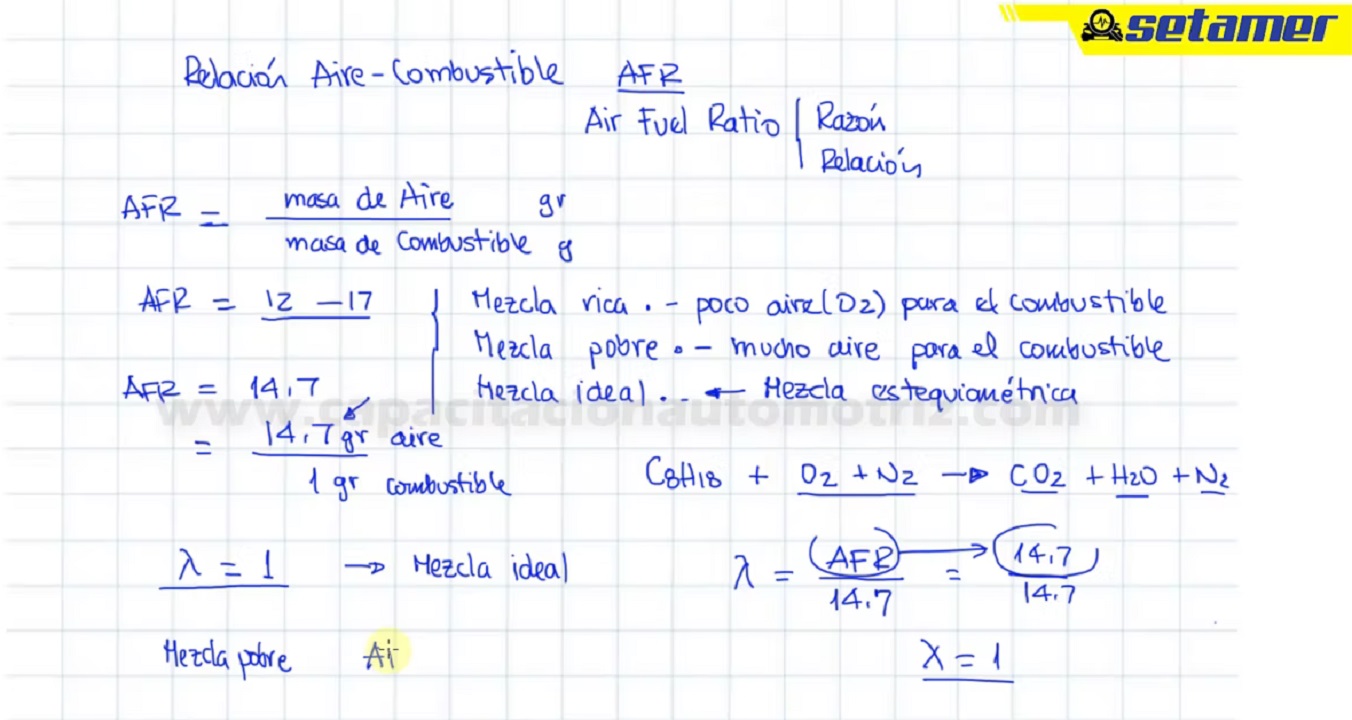 setamer
Relación Aire-Combustible AFR
Air Fuel Ratio Razón
Relación
AFR = masa de Aire gr
masa de Combustible g
AFR = 12 - 17
Mezcla rica . - poco aire (O2) para el combustible
Mezcla pobre . - mucho aire para el combustible
AFR = 14,7
Mezcla ideal . - ← Mezcla estequiométrica
www.capacitacionautomotriz.com
= 14,7 gr aire
1 gr combustible
C8H18 + O2 + N2 → CO2 + H2O + N2
λ = 1 → Mezcla ideal
λ = (AFR) → (14,7)
14.7 = 14.7
Mezcla pobre Ai
λ = 1